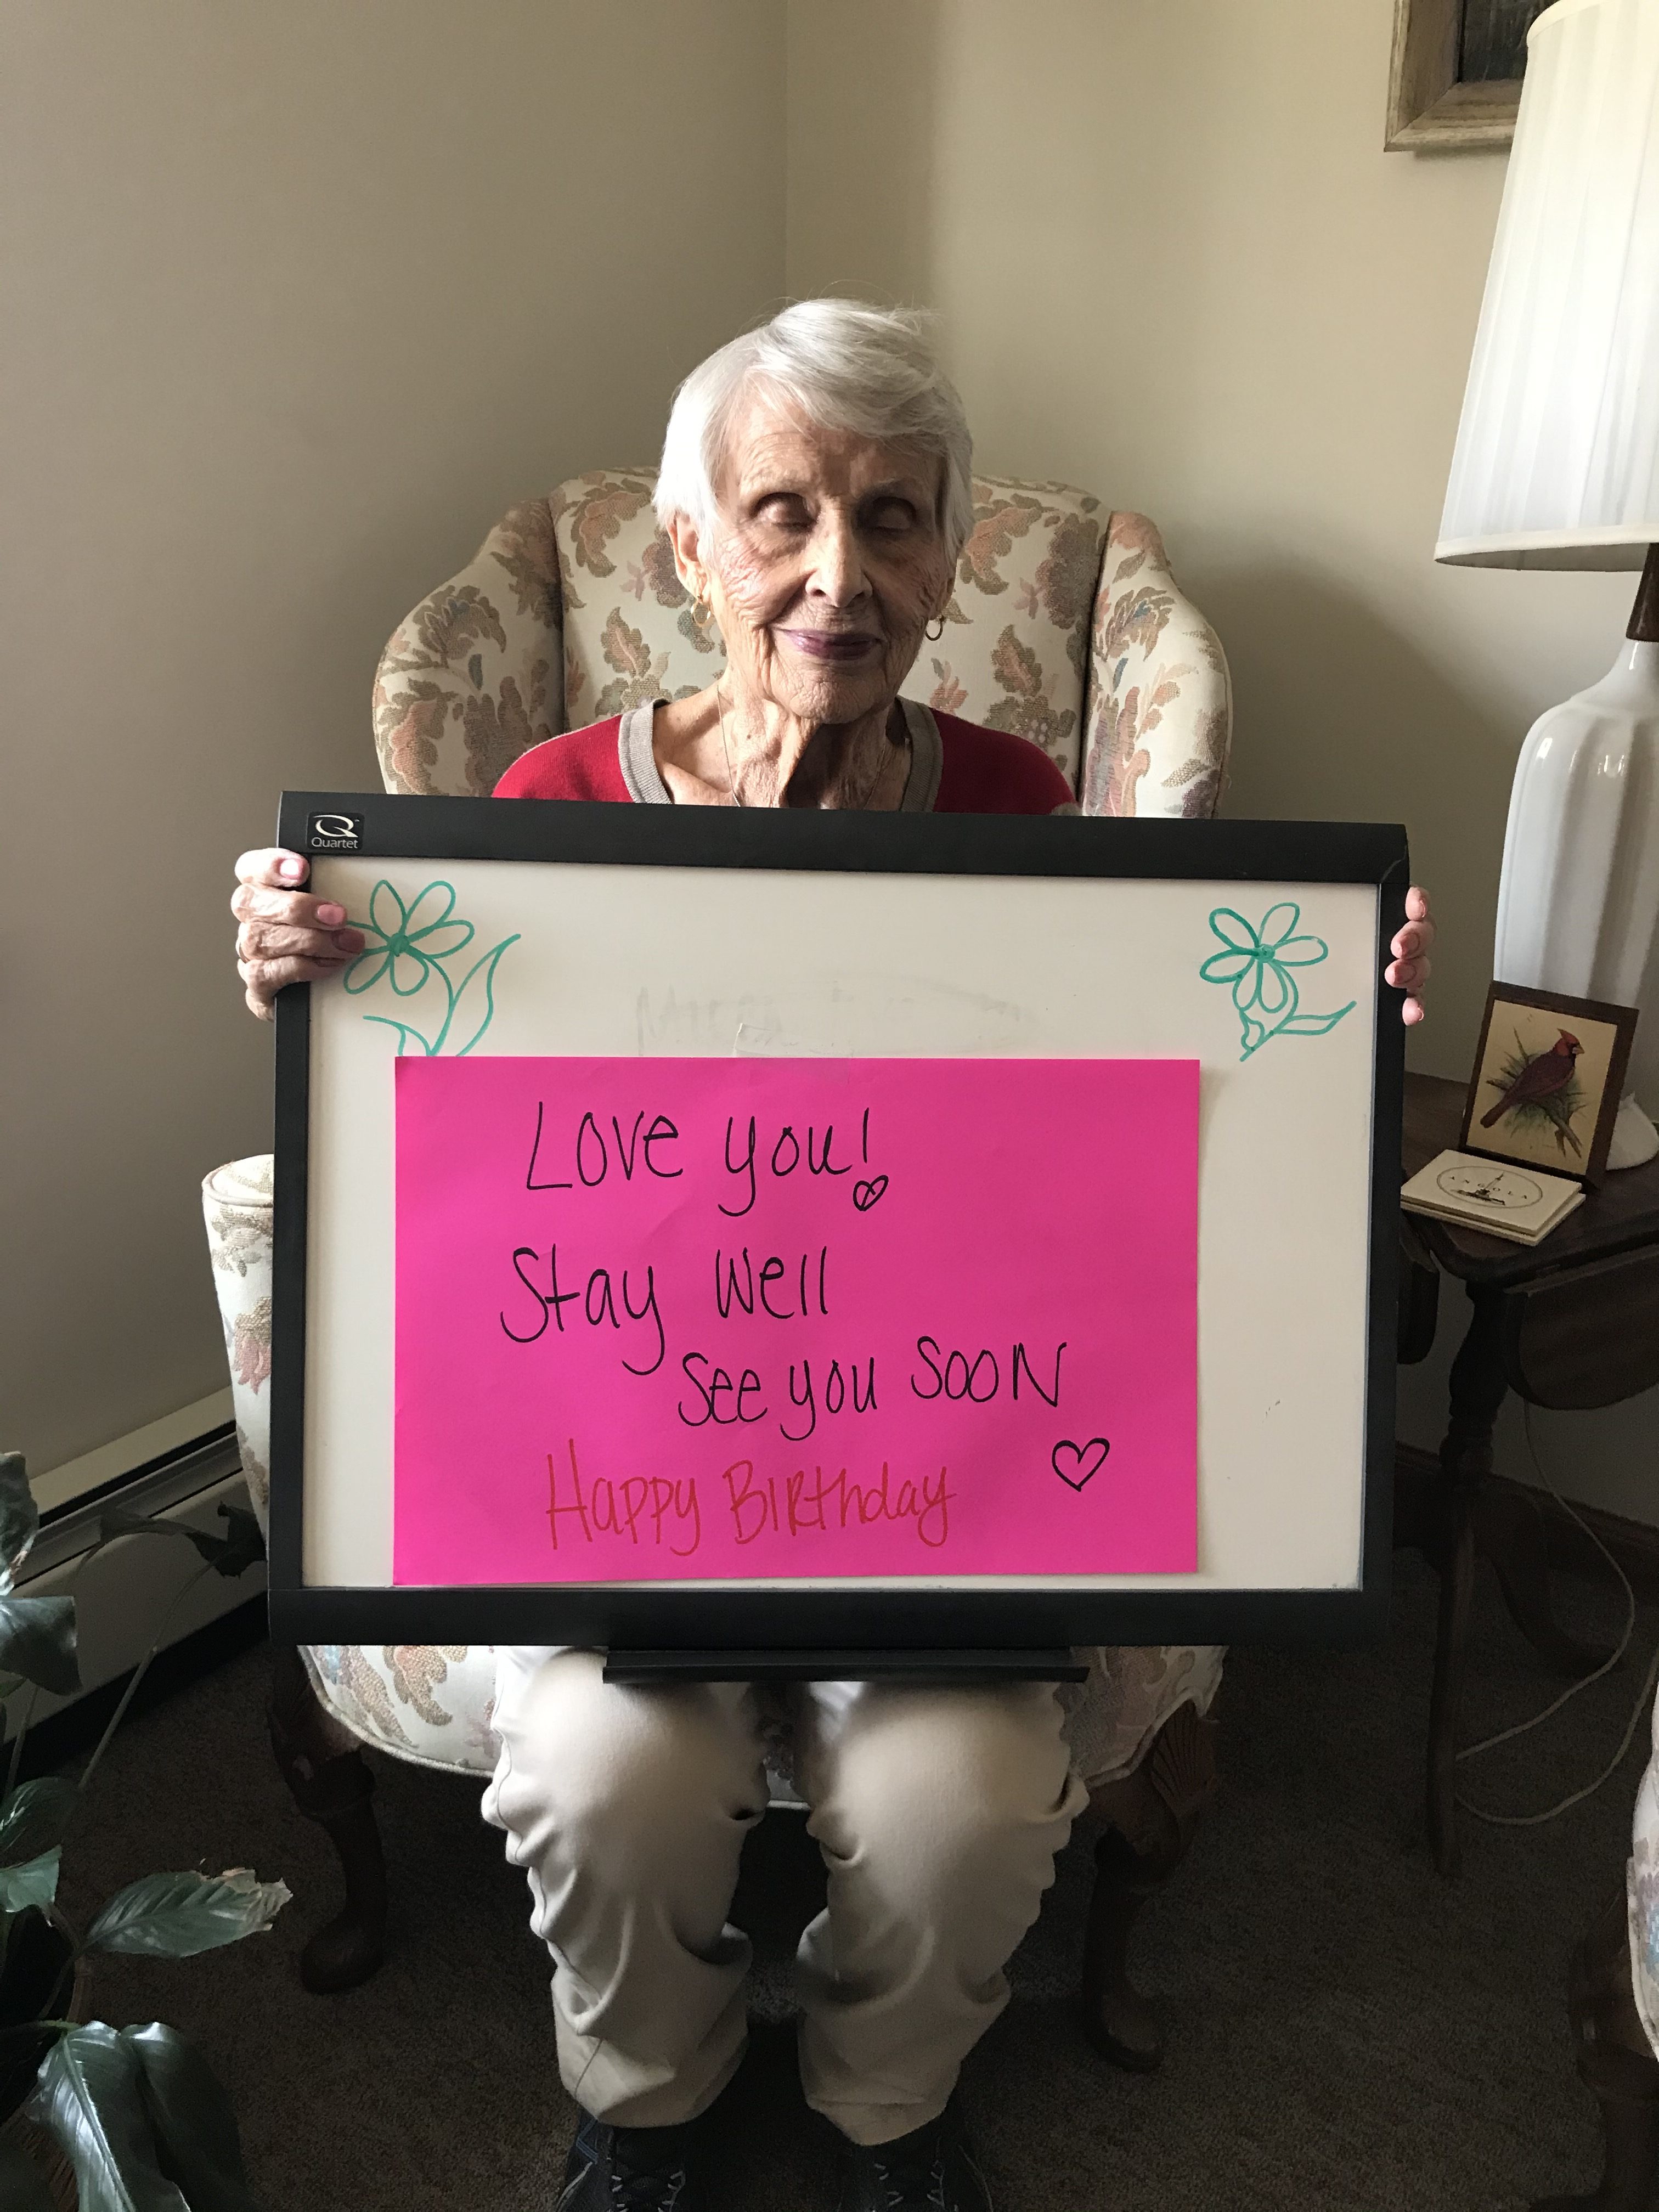 Quartet
Love you!
Stay Well
See you SOON
Happy Birthday
ANGOLA